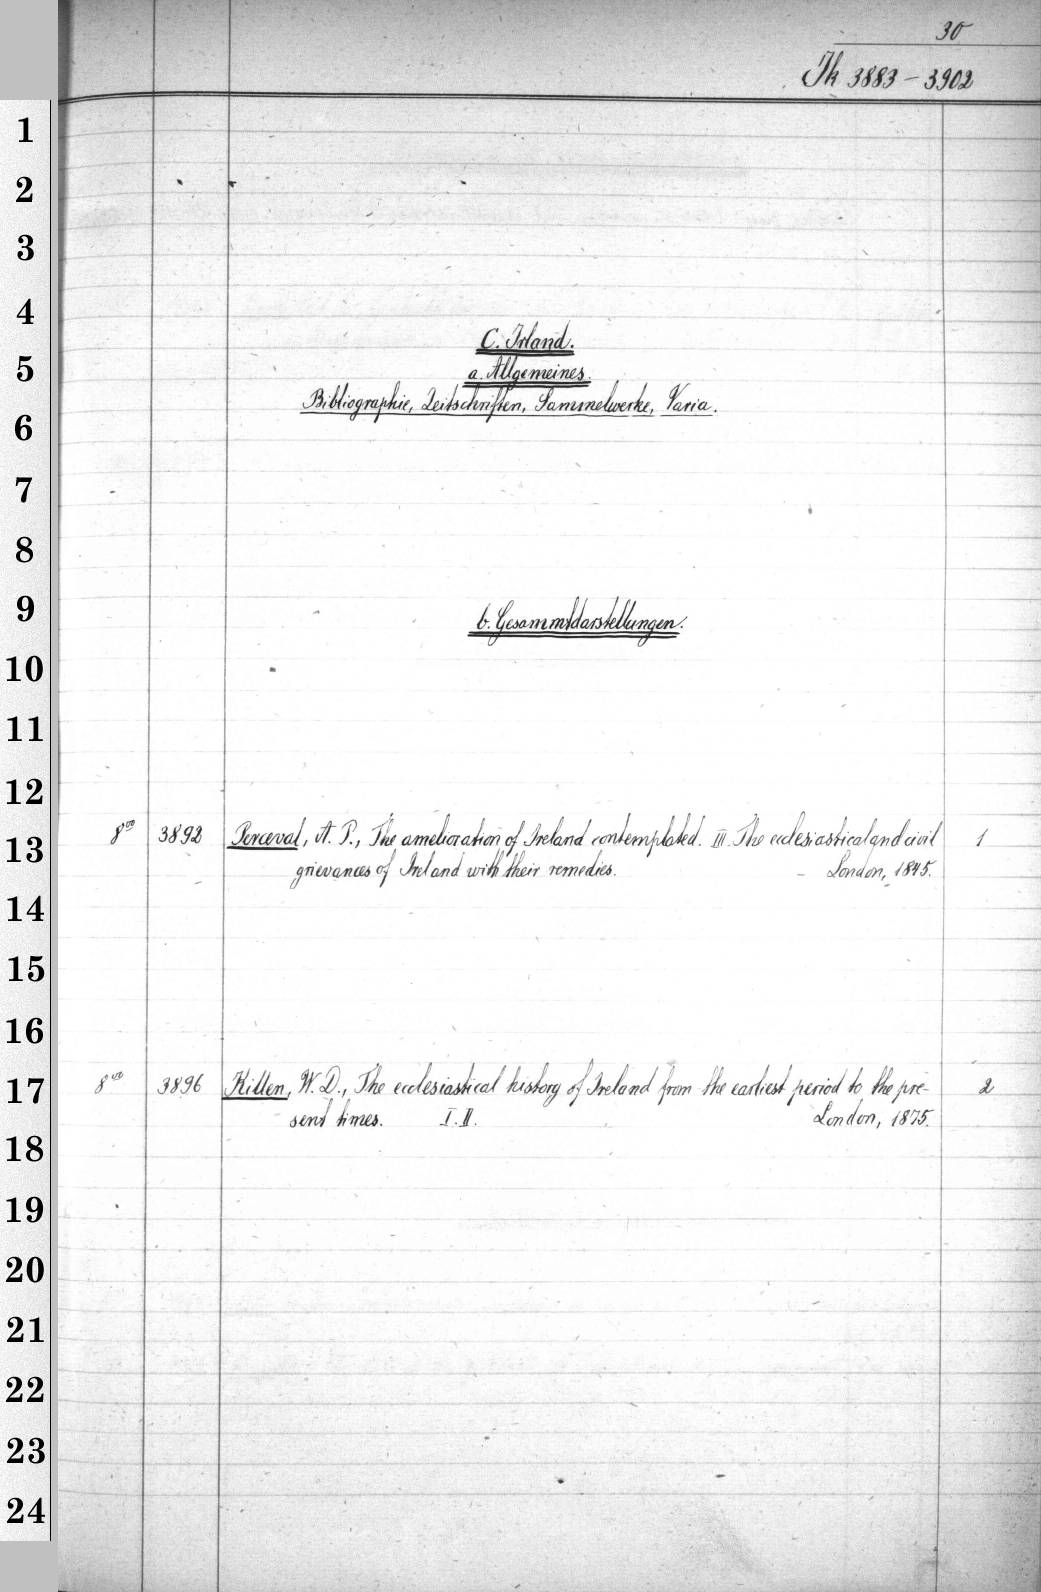 30
Ik 3883 - 3902
1
2
3
4
C. Irland.
5
a. Allgemeines.
Bibliographie, Zeitschriften, Sammelwerke, Varia.
6
7
8
9
b. Gesammtdarstellungen.
10
11
12
8vo 3892 Perceval, A. P., The amelioration of Ireland contemplated. III. The ecclesiastical and civil 1
13
grievances of Ireland with their remedies. - London, 1845.
14
15
16
8vo 3896 Killen, W. D., The ecclesiastical history of Ireland from the earliest period to the pre- 2
17
sent times. I. II. London, 1875.
18
19
20
21
22
23
24